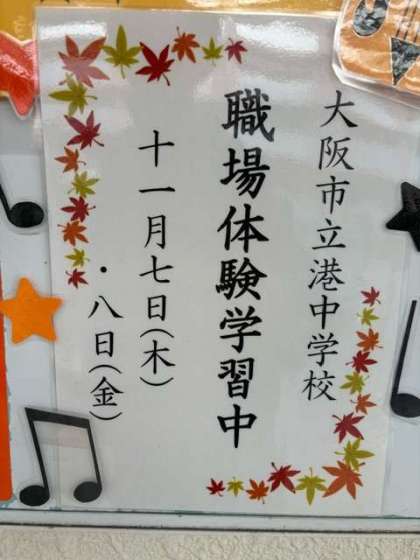 大阪市立港中学校
職場体験学習中
十一月七日(木)
・八日(金)